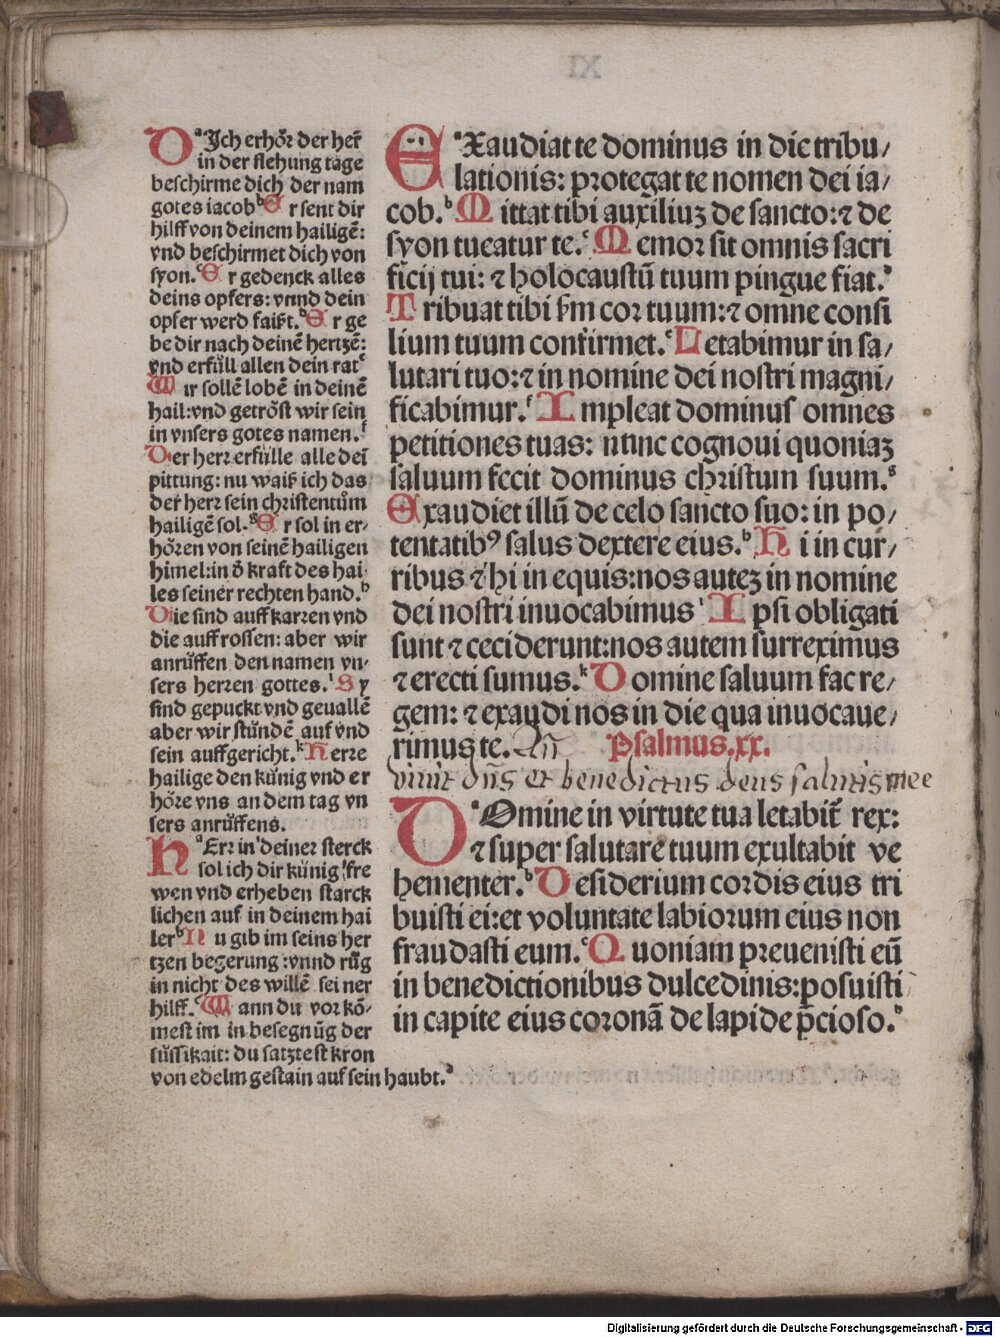 XI
DᵃIch erhör der her̃
in der slehung tage
beschirme dich der nam
gotes iacobᵇ Er sent dir
hilff von deinem hailigē:
vnd beschirmet dich von
syon.ᶜ Er gedenck alles
deins opfers: vnnd dein
opfer werd faißt.ᵈ Er ge
be dir nach deinē hertzē:
vnd erfüll allen dein ratᵉ
Wir sollē lobē in deinē
hail: vnd getröst wir sein
in vnsers gotes namen.ᶠ
Der herr erfülle alle dei
pittung: nu waiß ich das
der herr sein christentům
hailigē sol.ᵍ Er sol in er-
hören von seinē hailigen
himel: in ð kraft des hai
les seiner rechten hand.ʰ
Die sind auff karren vnd
die auff rossen: aber wir
anrůffen den namen vn-
sers herren gottes.ⁱ Sy
sind gepuckt vnd geuallē
aber wir stůndē auf vnd
sein auffgericht.ᵏ Herre
hailige den künig vnd er
höre vns an dem tag vn
sers anrůffens.
HᵃErr in deiner sterck
sol ich dir künig fre
wen vnd erheben starck
lichen auf in deinem hai
lerᵇ Nu gib im seins her
tzen begerung: vnnd rüg
in nicht des willē seiner
hilff.ᶜ Wann du vorkō-
mest im in besegnūg der
süssikait: du satztest kron
von edelm gestain auf sein haubt.ᵈ
EᵃXaudiat te dominus in die tribu/
lationis: protegat te nomen dei ia/
cob.ᵇ Mittat tibi auxiliuꝫ de sancto: ⁊ de
syon tueatur te.ᶜ Memor sit omnis sacri
ficij tui: ⁊ holocaustū tuum pingue fiat.ᵈ
Tribuat tibi ẜm cor tuum: ⁊ omne consi
lium tuum confirmet.ᵉ Letabimur in sa/
lutari tuo: ⁊ in nomine dei nostri magni/
ficabimur.ᶠ Impleat dominus omnes
petitiones tuas: nunc cognoui quoniaꝫ
saluum fecit dominus christum suum.ᵍ
Exaudiet illū de celo sancto suo: in po/
tentatibꝰ salus dextere eius.ʰ Hi in cur/
ribus ⁊ hi in equis: nos auteꝫ in nomine
dei nostri inuocabimusⁱ Ipsi obligati
sunt ⁊ ceciderunt: nos autem surreximus
⁊ erecti sumus.ᵏ Domine saluum fac re/
gem: ⁊ exaudi nos in die qua inuocaue/
rimus te. Añ Psalmus.xx.
viuit dñs et benedictus deus salutis mee
DᵃOmine in virtute tua letabit̄ rex:
⁊ super salutare tuum exultabit ve
hementer.ᵇ Desiderium cordis eius tri
buisti ei: et voluntate labiorum eius non
fraudasti eum.ᶜ Quoniam preuenisti eū
in benedictionibus dulcedinis: posuisti
in capite eius coronā de lapide p̄cioso.ᵈ
Digitalisierung gefördert durch die Deutsche Forschungsgemeinschaft - DFG